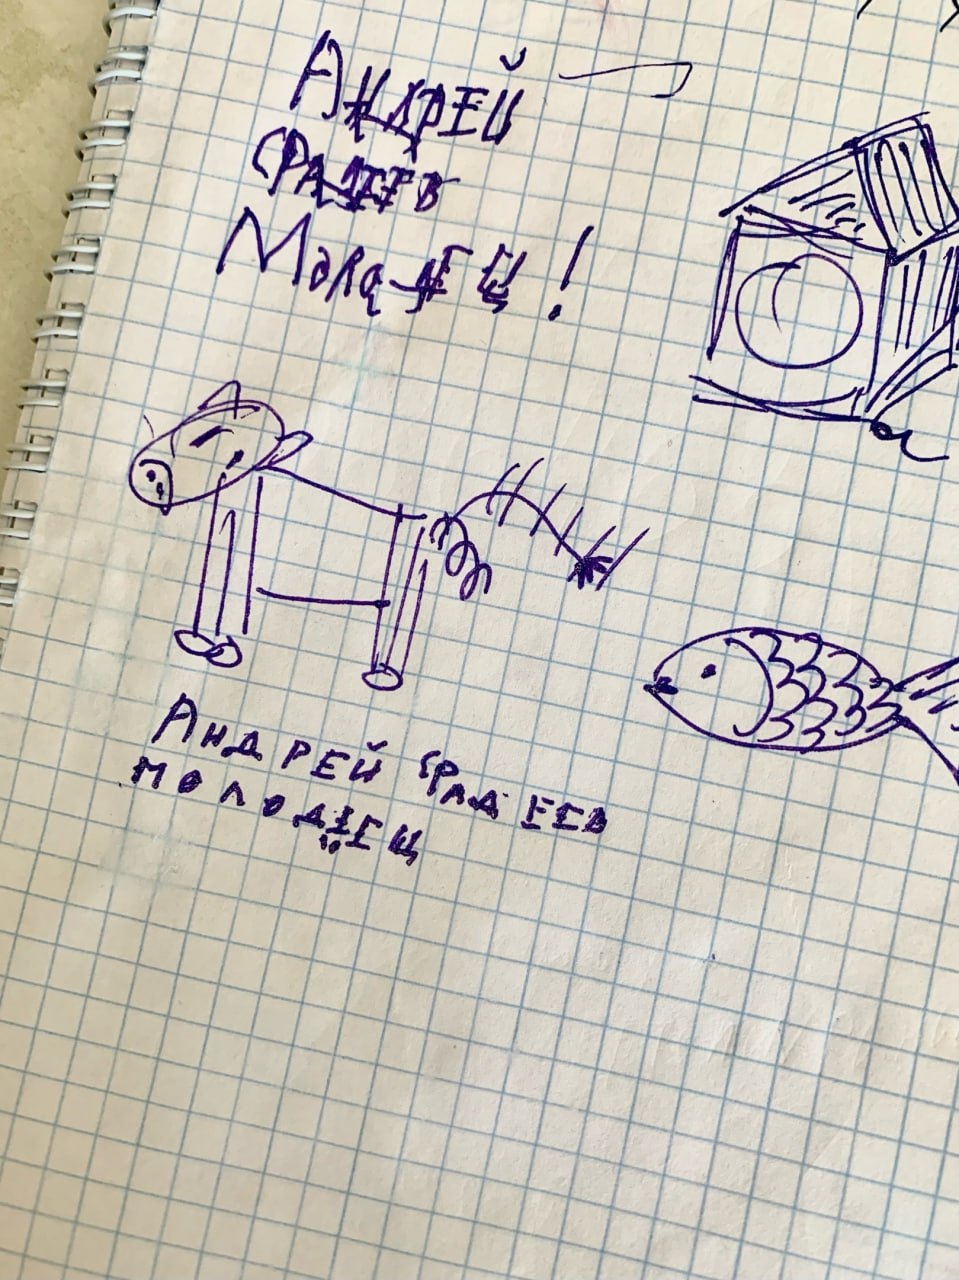 Андрей
Фадеев
Молодец!
Андрей Фадеев
молодец